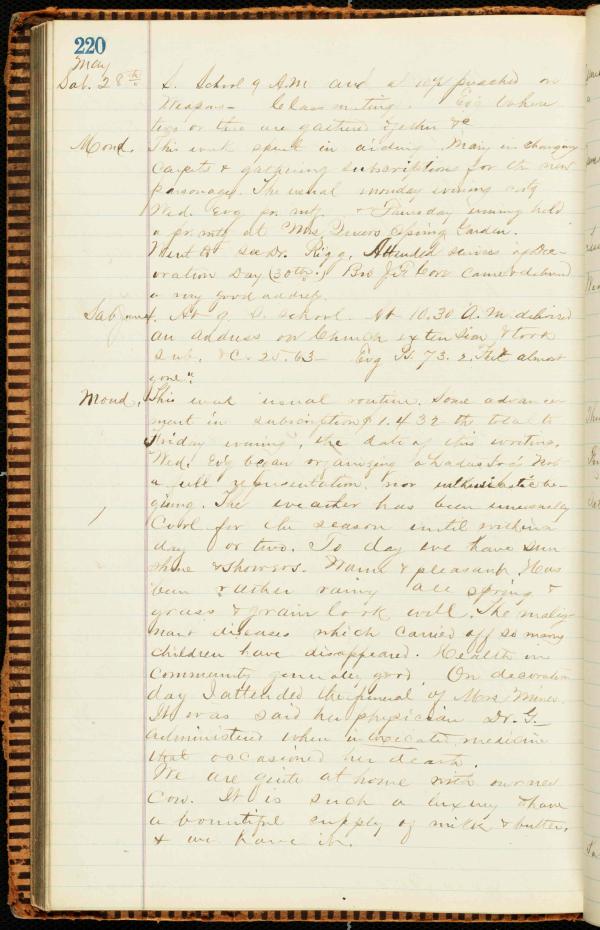 220
May
Sab. 28th. S. School 9 A.M and at 10½ preached on
Weapons— Class meeting. Evg Where
two or three are gathered together &c
Mond. This week spent in aiding Mary in changing
Carpets & gathering subscriptions for the new
Parsonage. The usual monday evening mtg
Wed. Evg pr. mtg. & Thursday evening held
a pr. mtg at Mrs Spring Garden.
Went to see Dr. Rigg. Attended services of Dec-
oration Day (30th.) Bro J.F. Cove came & delivered
a very good address.
Sab June 4. At 9. S. School. At 10.30 A.M. delivered
an address on Church extension & took
sub. &c. 25.63— Evg Ps 73. 2. "Feet almost
gone".
Mond. This week usual routine. Some advance-
ment in subscription $1.432 the total to
Friday evening, the date of this writing.
Wed. Evg began organizing a Ladies Soc. Not
a full representation, nor enthusiastic be-
gining. The weather has been unusually
Cool for the season until within a
day or two. To day we have sun
shine & showers. Warm & pleasant. Has
been rather rainy all spring &
grass & grain look well. The malig-
nant diseases which carried off so many
children have disappeared. Health in
Community generally good. On decoration
day I attended the funeral of Mrs Miner.
It was said her physician Dr. G.—
administered when intoxicated medicine
that occasioned her death.
We are quite at home with our new
Cow. It is such a luxury to have
a bountiful supply of milk & butter,
& we have it.